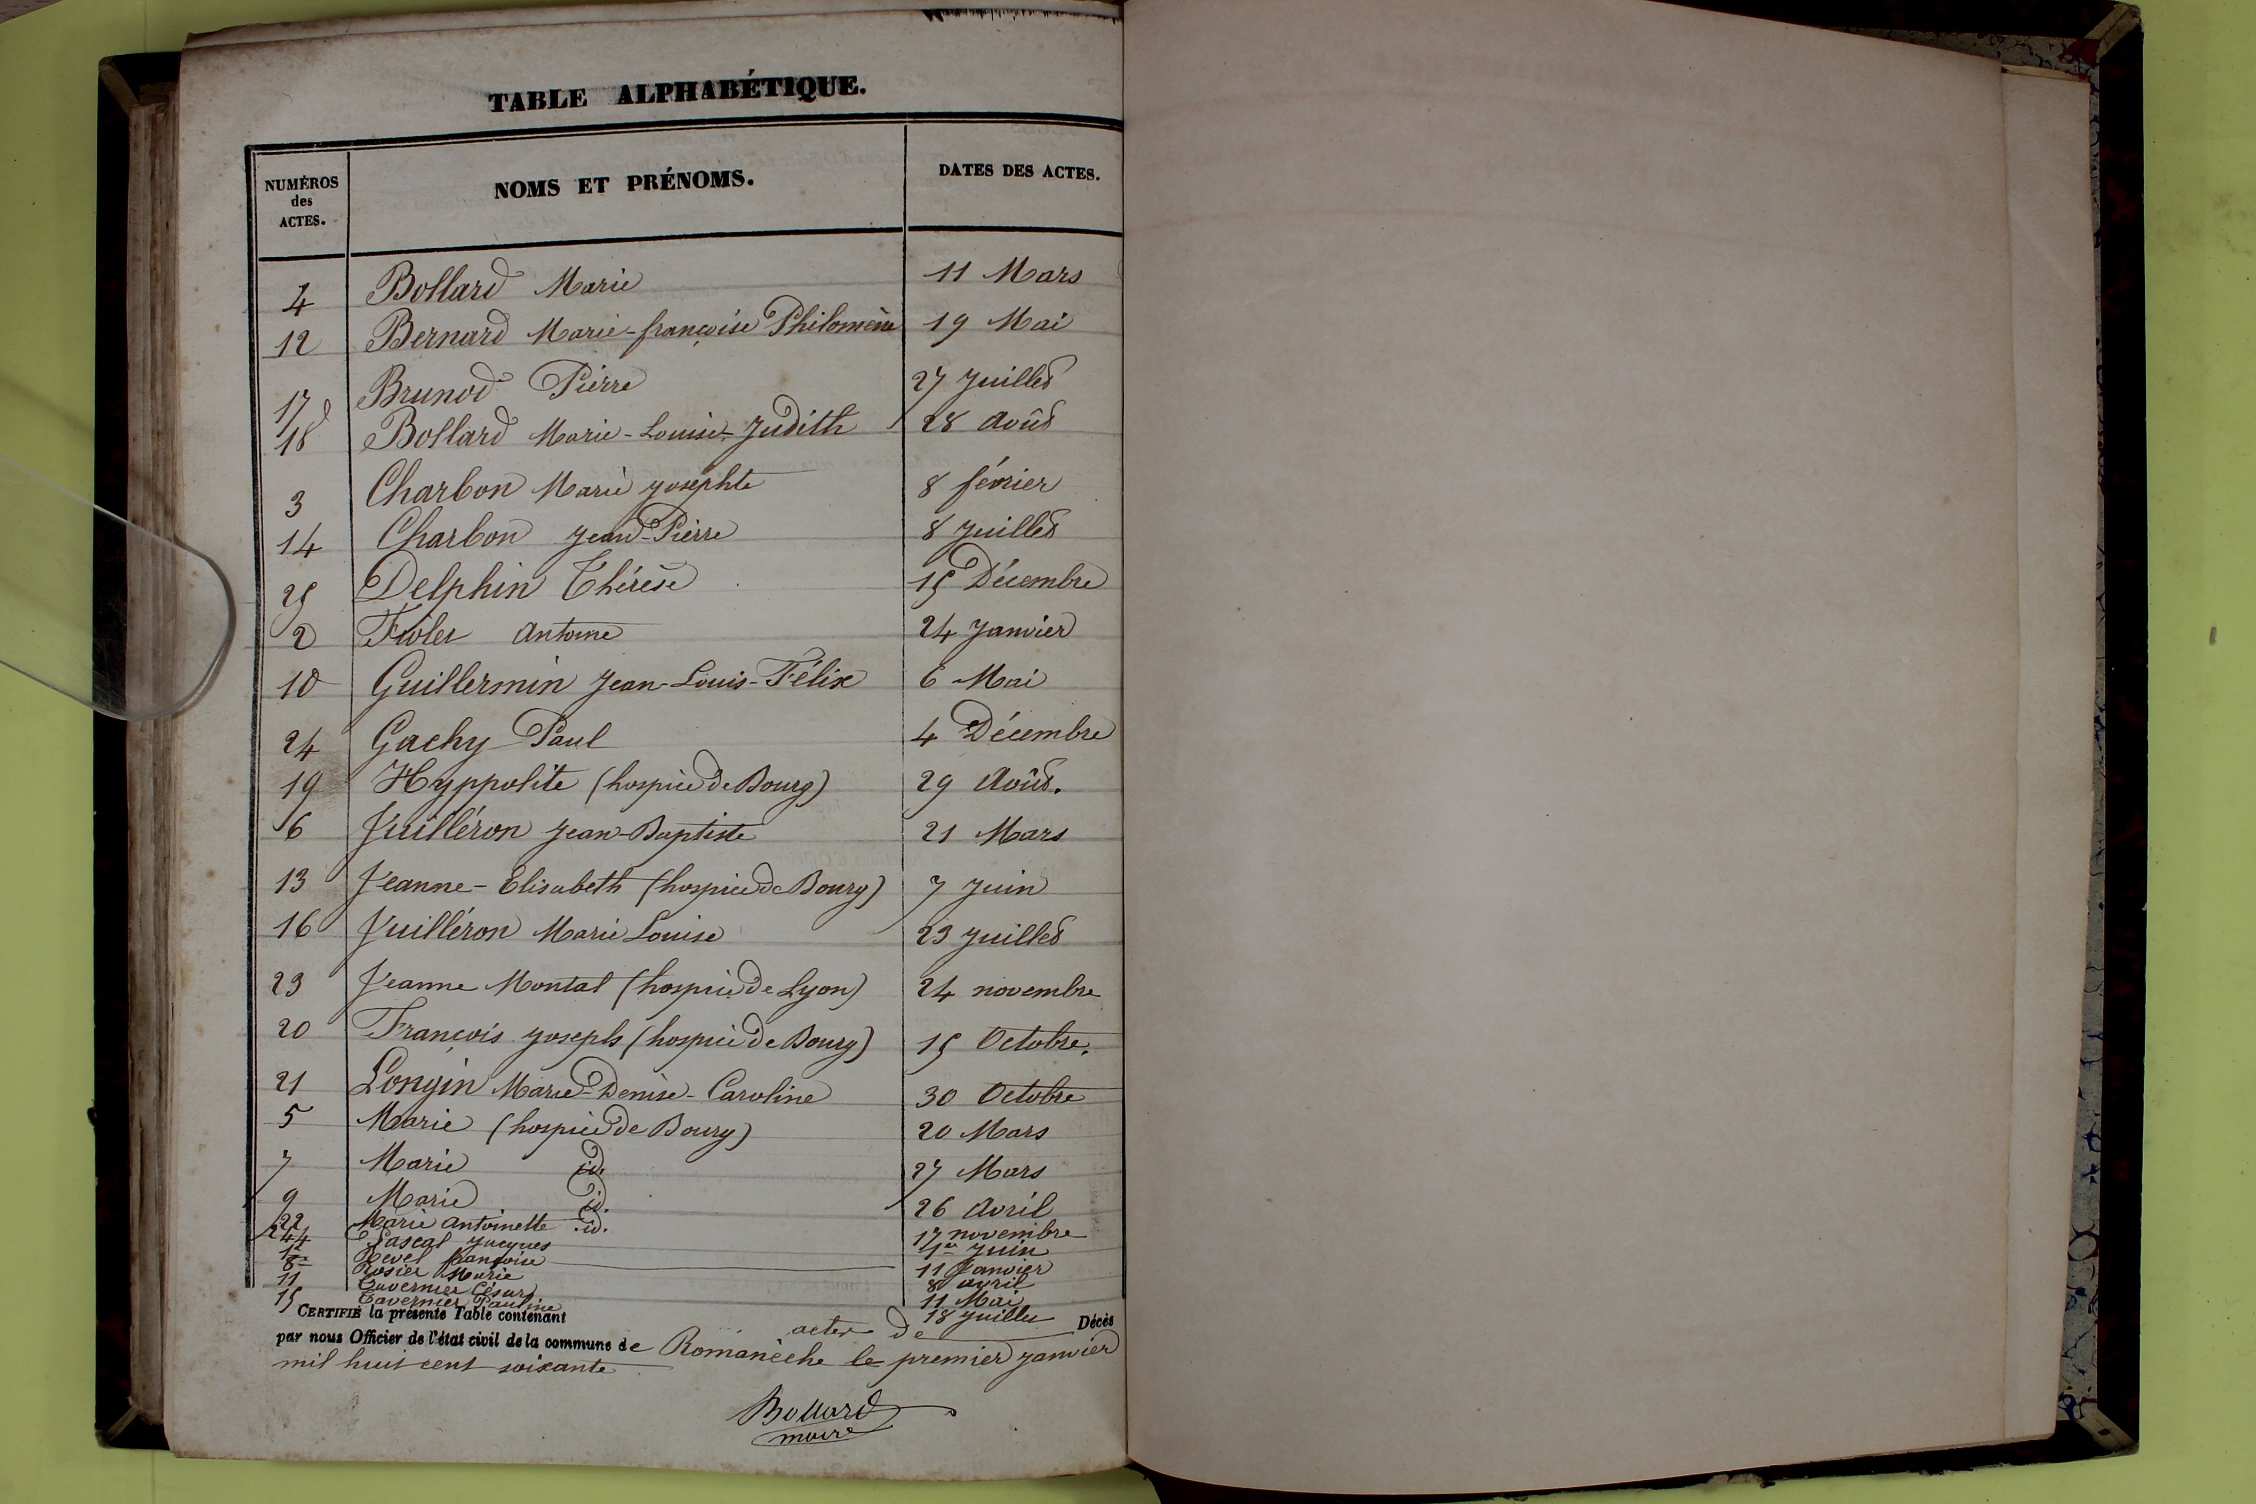 TABLE ALPHABÉTIQUE.
NUMÉROS des ACTES. NOMS ET PRÉNOMS. DATES DES ACTES.
4 Bollard Marie 11 Mars
12 Bernard Marie-françoise Philomène 19 Mai
17 Brunod Pierre 27 Juillet
18 Bollard Marie-Louise-Judith 28 Août
3 Charbon Marie Josephte 8 février
14 Charbon Jean-Pierre 8 Juillet
25 Delphin Thérèse 15 Décembre
2 Antoine 24 Janvier
10 Guillermin Jean-Louis-Félix 6 Mai
24 Gachy Paul 4 Décembre
19 Hyppolite (hospice de Bourg) 29 Août.
6 Juilléron Jean-Baptiste 21 Mars
13 Jeanne-Elisabeth (hospice de Bourg) 7 Juin
16 Juilléron Marie Louise 23 Juillet
23 Jeanne Montal (hospice de Lyon) 24 novembre
20 François Joseph (hospice de Bourg) 15 Octobre.
21 Longin Marie-Denise-Caroline 30 Octobre
5 Marie (hospice de Bourg) 20 Mars
7 Marie id. 27 Mars
9 Marie id. 26 Avril
22 Marie Antoinette id. 17 novembre
Pascal Jacques 1er Juin
1 Revel françoise 11 Janvier
8 Rosier Marie 8 avril
11 Tavernier César 11 Mai
15 Tavernier Pauline 18 Juillet
CERTIFIÉ la présente Table contenant actes de Décès
par nous Officier de l'état civil de la commune de Romanèche le premier janvier
mil huit cent soixante
Bollard
maire